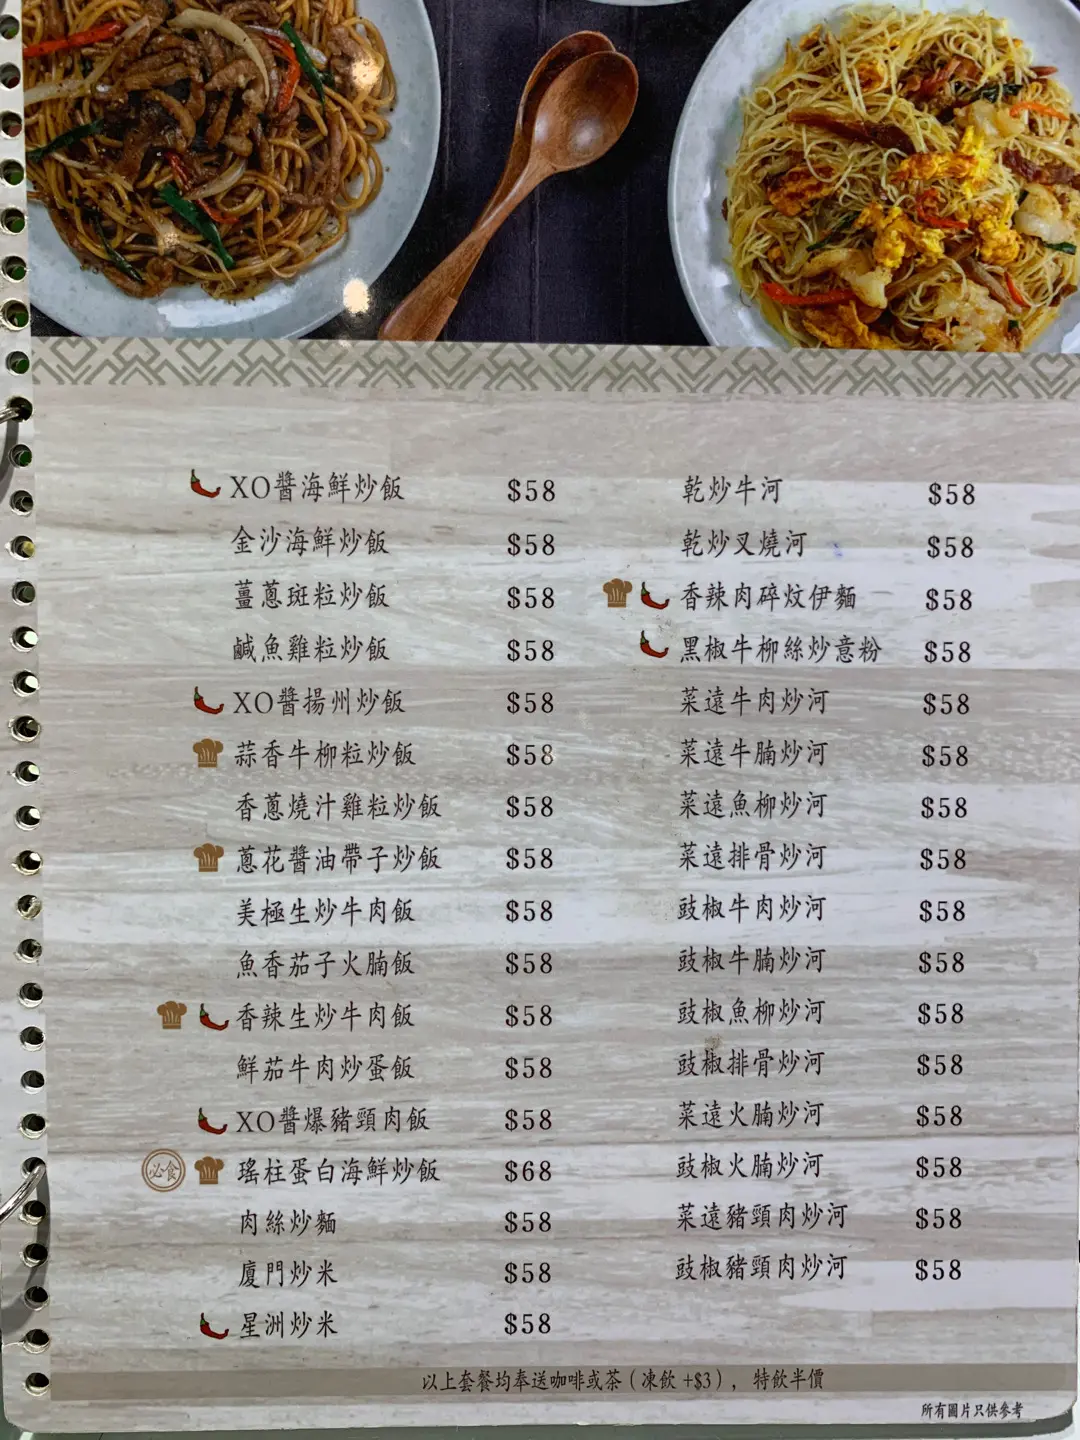 XO醬海鮮炒飯 $58
金沙海鮮炒飯 $58
薑蔥斑粒炒飯 $58
鹹魚雞粒炒飯 $58
XO醬揚州炒飯 $58
蒜香牛柳粒炒飯 $58
香蔥燒汁雞粒炒飯 $58
蔥花醬油帶子炒飯 $58
美極生炒牛肉飯 $58
魚香茄子火腩飯 $58
香辣生炒牛肉飯 $58
鮮茄牛肉炒蛋飯 $58
XO醬爆豬頸肉飯 $58
必食 瑤柱蛋白海鮮炒飯 $68
肉絲炒麵 $58
廈門炒米 $58
星洲炒米 $58
乾炒牛河 $58
乾炒叉燒河 $58
香辣肉碎炆伊麵 $58
黑椒牛柳絲炒意粉 $58
菜遠牛肉炒河 $58
菜遠牛腩炒河 $58
菜遠魚柳炒河 $58
菜遠排骨炒河 $58
豉椒牛肉炒河 $58
豉椒牛腩炒河 $58
豉椒魚柳炒河 $58
豉椒排骨炒河 $58
菜遠火腩炒河 $58
豉椒火腩炒河 $58
菜遠豬頸肉炒河 $58
豉椒豬頸肉炒河 $58
以上套餐均奉送咖啡或茶（凍飲 +$3），特飲半價
所有圖片只供參考